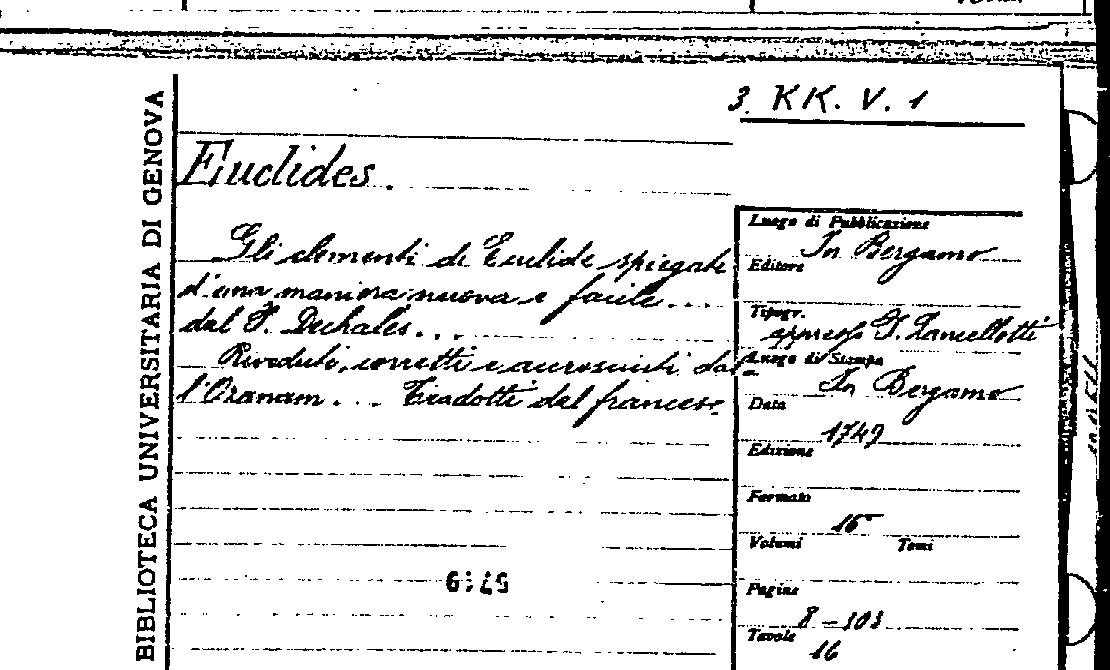 3. KK. V. 1
BIBLIOTECA UNIVERSITARIA DI GENOVA
Euclides.
Gli elementi di Euclide spiegati
d'una maniera nuova e facile...
dal P. Dechales...
Riveduti, corretti e accresciuti dal-
l'Ozanam... Tradotti dal francese.
Luogo di Pubblicazione
In Bergamo
Editore
Tipogr.
appresso P. Lancellotti
Luogo di Stampa
In Bergamo
Data
1749
Edizione
Formato
16°
Volumi Tomi
Pagine
Tavole
16